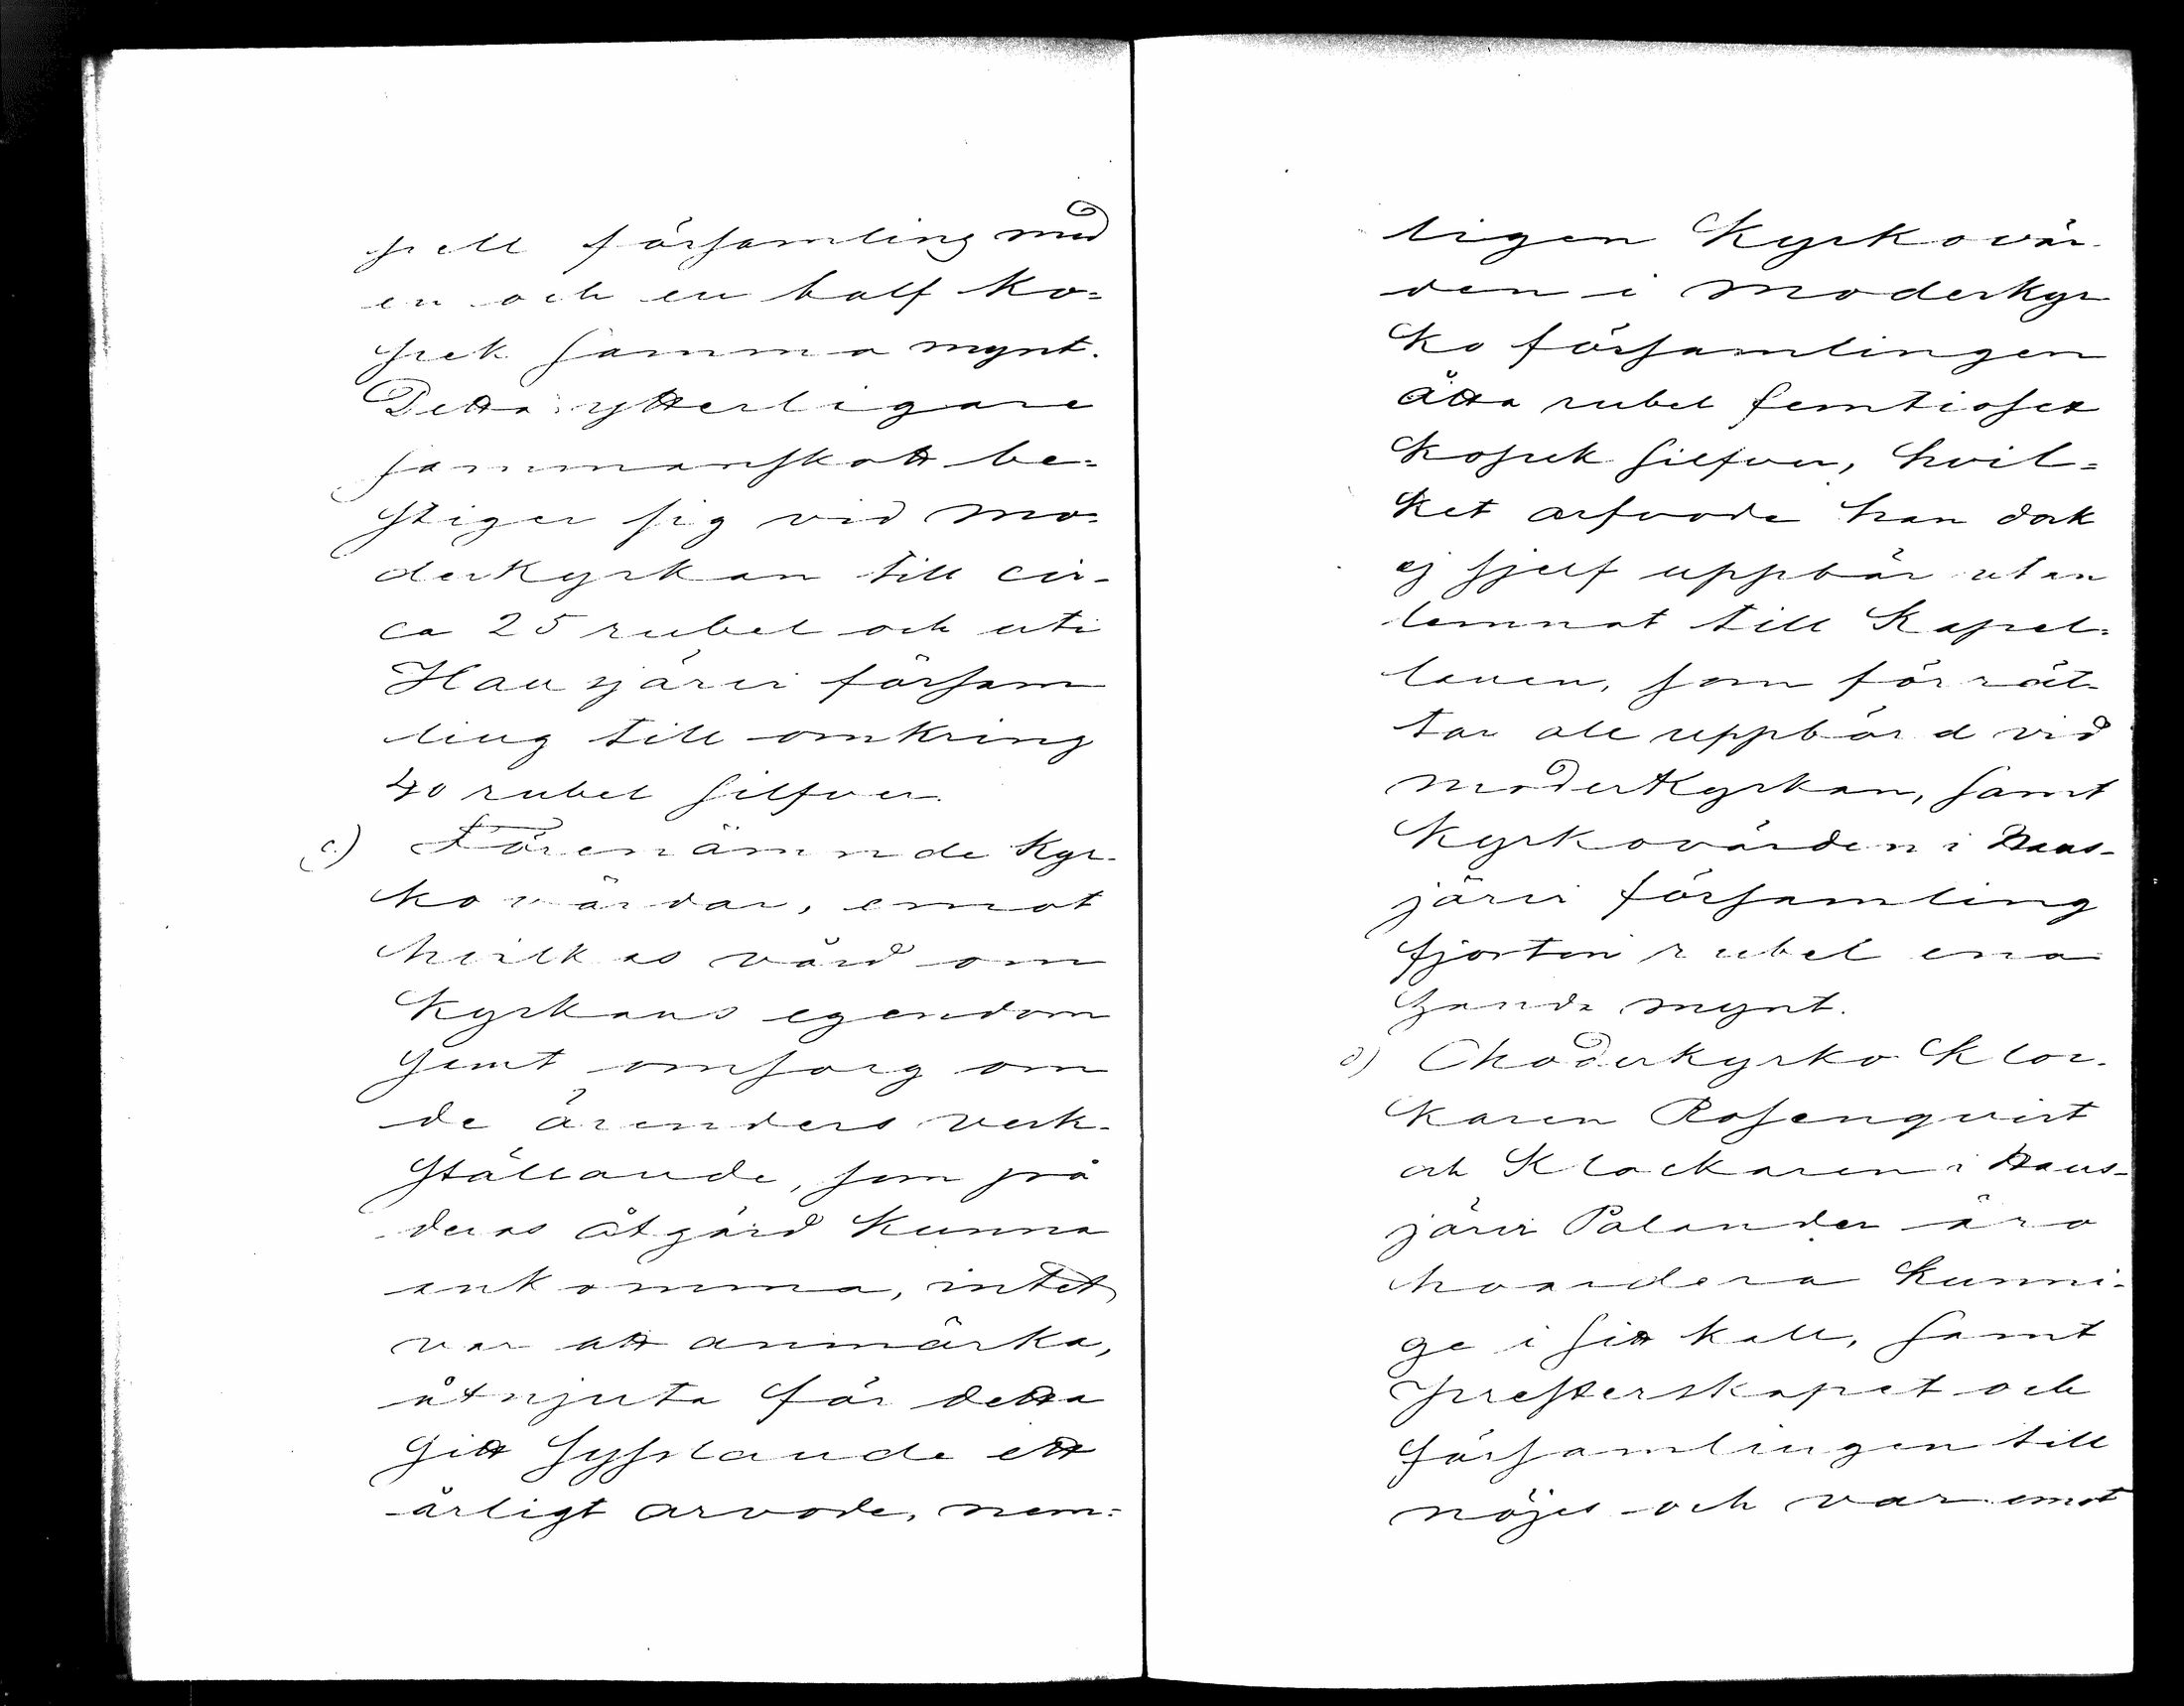 pell församling med
en och en half ko=
pek samma mynt.
Detta ytterligare
sammanskott be=
stiger sig vid mo=
derkyrkan till cir-
ca 25 rubel och uti
Hausjärvi försam
ling till omkring
40 rubel silfver.
c.) Förenämnde Kyr-
kovärdar, emot
hvilkas vård om
Kyrkans egendom
samt omsorg om
de ärenders verk-
ställande, som på
deras åtgärd kunna
ankomma, intet
var att anmärka,
åtnjuta för detta
sitt sysslande ett
årligt arvode, nem=
ligen Kyrkovär-
den i moderkyr
ko församlingen
åtta rubel femtiosex
kopek silfver, hvil=
ket arfvode han dock
ej sjelf uppbär utan
lemnat till Kapel=
lanen, som förrät-
tar all uppbörd vid
moderkyrkan, samt
Kyrkovärden i Haus-
järvi församling
fjorton rubel ena
handa mynt.
d) Moderkyrko Kloc-
karen Rosenqvist
och Klockaren i Haus-
järvi Palander äro
hvardera kunni-
ge i sitt kall, samt
presterskapet och
församlingen till
nöjes och var emot